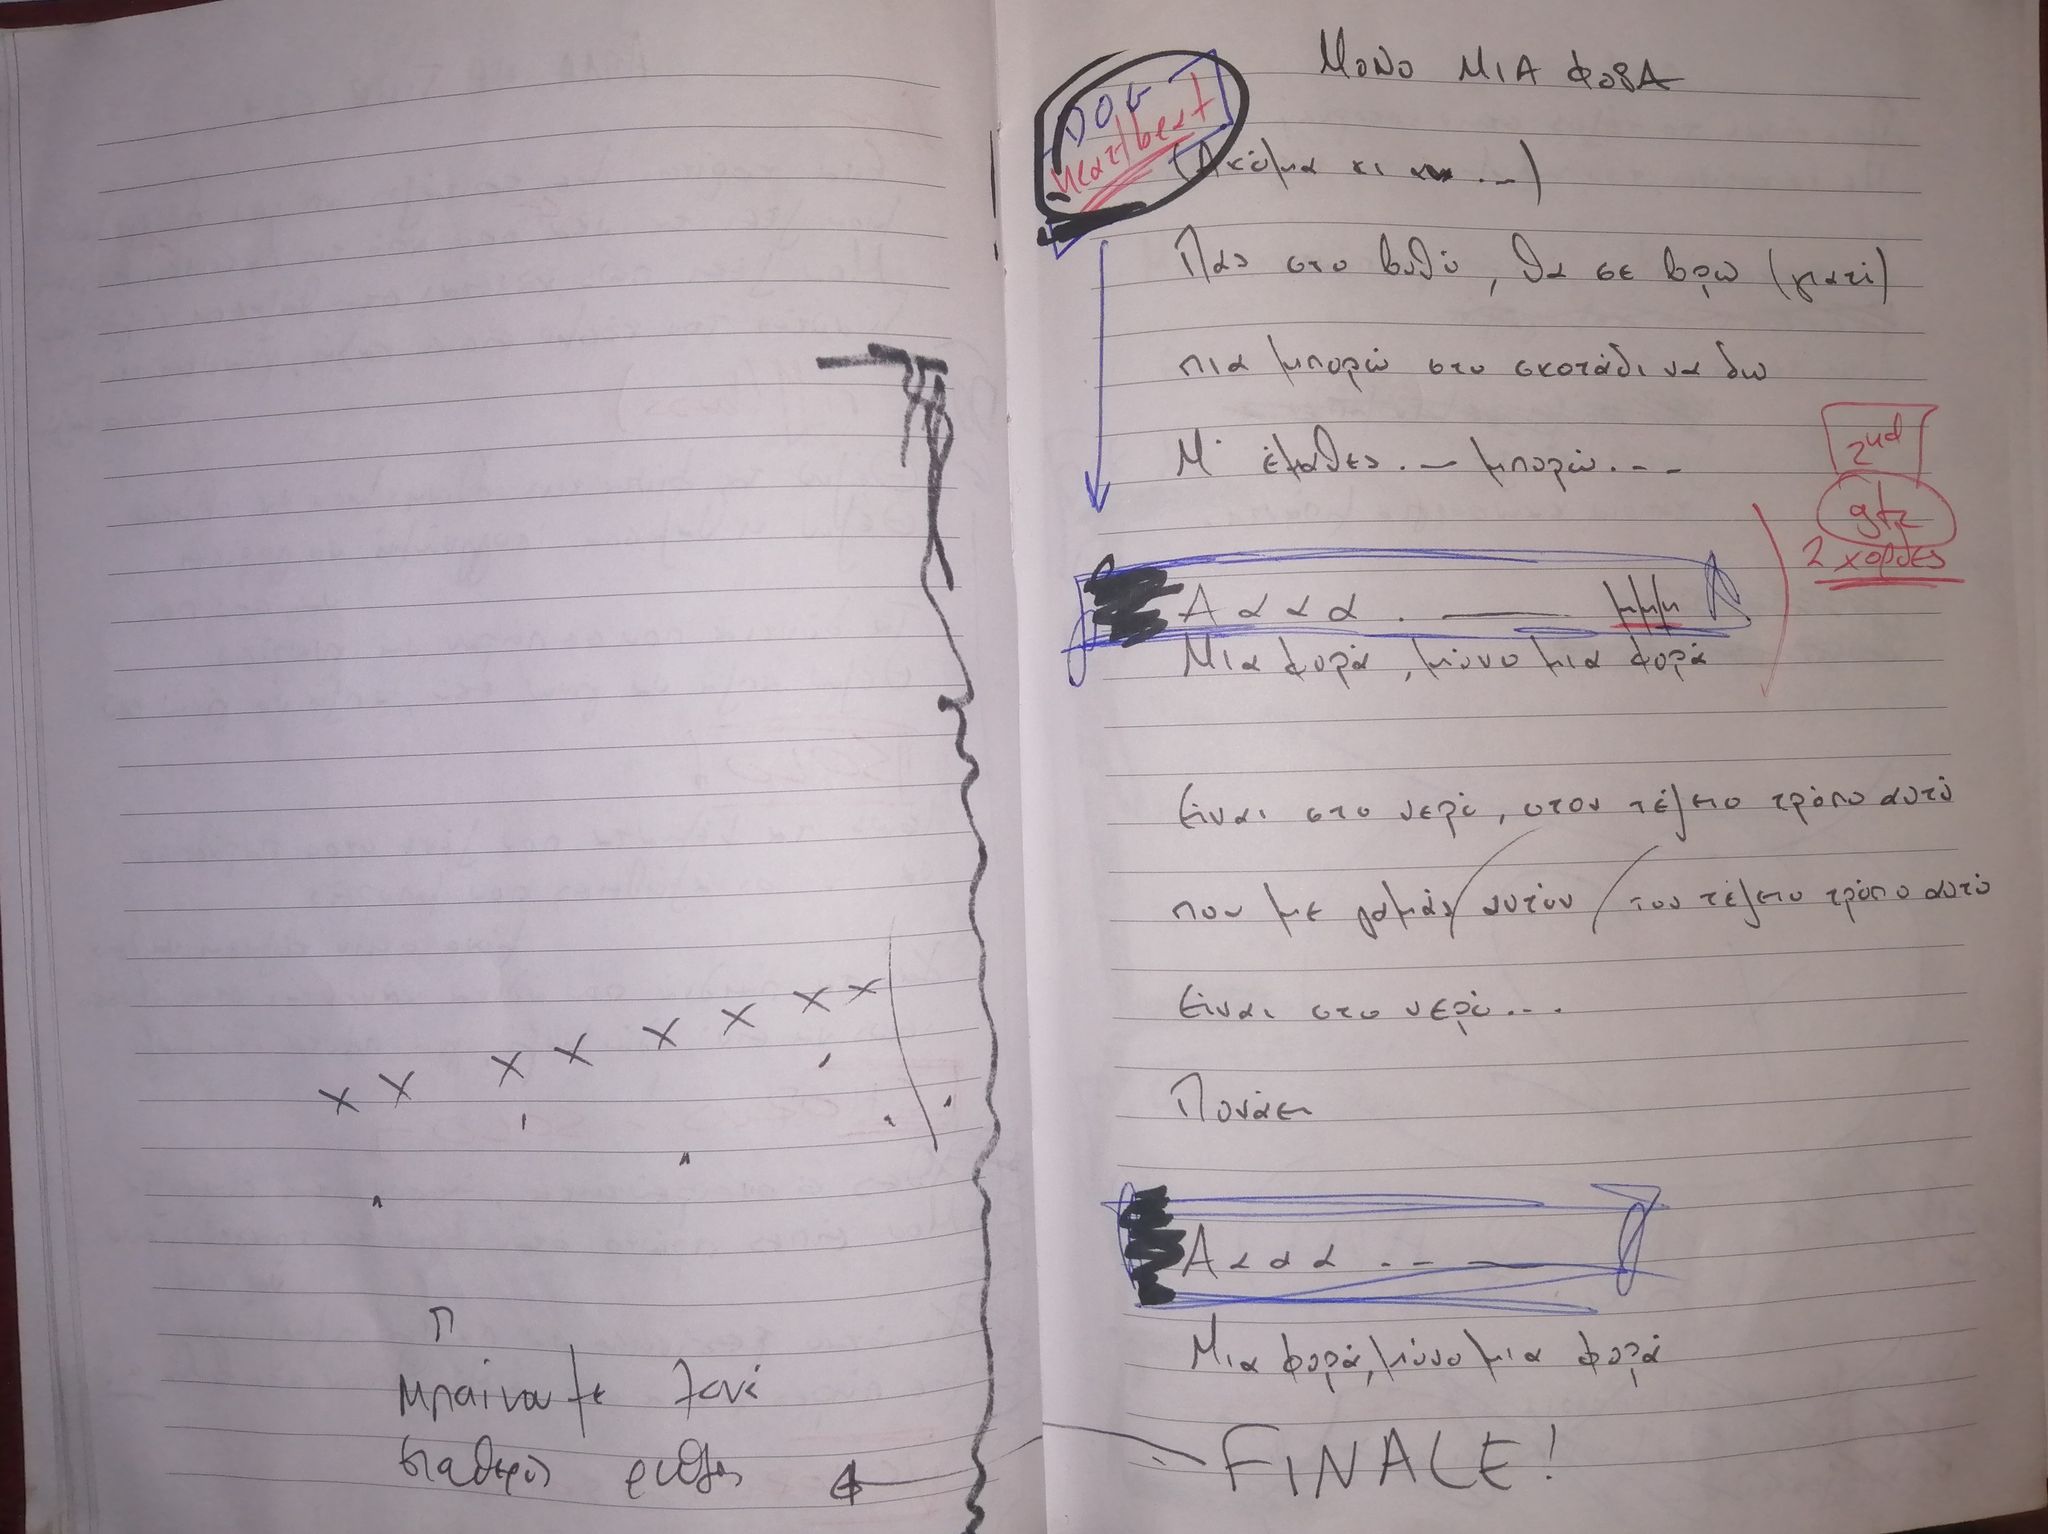 Π
Μπαίνουμε
σταθερός ρυθμός
ΜΟΝΟ ΜΙΑ ΦΟΡΑ
DOG
Heartbeat
(Ακόμα κι αν ...)
Πας στο βυθό, θα σε βρω (γιατί)
πια μπορώ στο σκοτάδι να δω
Μ' έμαθες ... μπορώ...
2nd
gtr
2 χορδές
Αααα . — μμμ
Μια φορά, μόνο μια φορά
Είναι στο νερό, στον τέλειο τρόπο αυτό
που με αυτόν / τον τέλειο τρόπο αυτό
Είναι στο νερό...
Πονάει
Αααα .-- —
Μια φορά, μόνο μια φορά
FINALE!